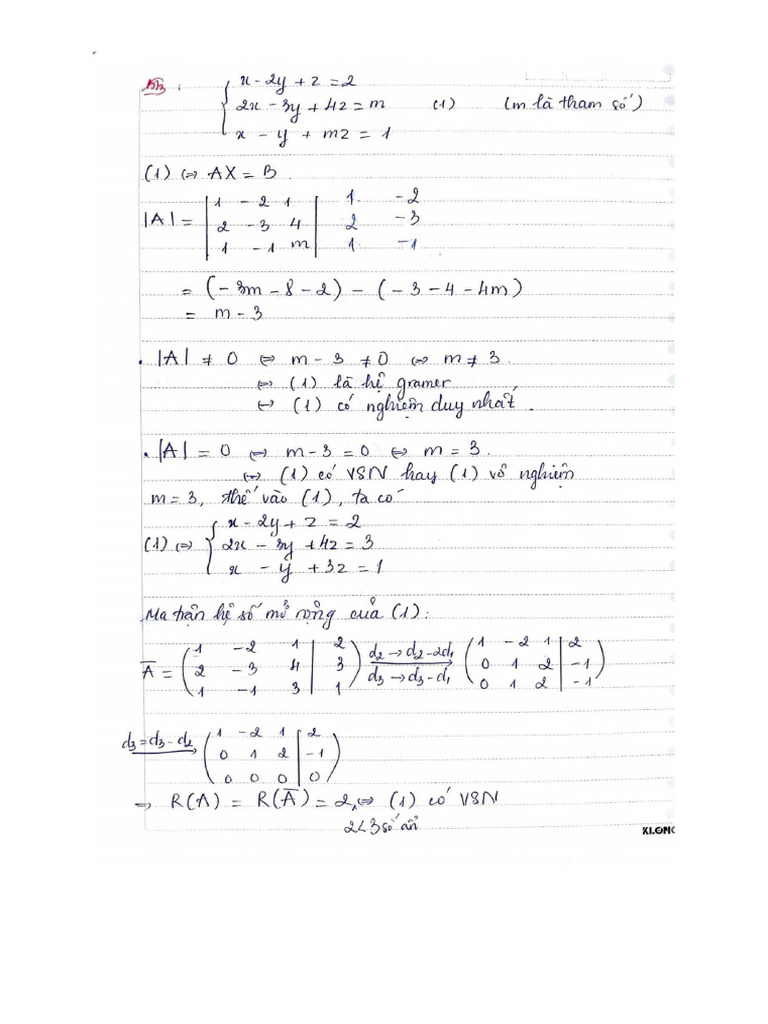 BT3 : { x - 2y + z = 2
2x - 3y + 4z = m (1) (m là tham số)
x - y + mz = 1
(1) ⇔ AX = B
|A| = | 1 -2 1 | 1 -2
2 -3 4 2 -3
1 -1 m 1 -1
= (-3m - 8 - 2) - (-3 - 4 - 4m)
= m - 3
. |A| ≠ 0 ⇔ m - 3 ≠ 0 ⇔ m ≠ 3.
⇔ (1) là hệ gramer
⇔ (1) có nghiệm duy nhất.
. |A| = 0 ⇔ m - 3 = 0 ⇔ m = 3.
⇔ (1) có VSN hay (1) vô nghiệm
m = 3, thế vào (1), ta có
x - 2y + z = 2
(1) ⇔ { 2x - 3y + 4z = 3
x - y + 3z = 1
Ma trận hệ số mở rộng của (1):
1 -2 1 | 2 d2 → d2 - 2d1 1 -2 1 | 2
Ā = ( 2 -3 4 | 3 ) ⟶ ( 0 1 2 | -1 )
1 -1 3 | 1 d3 → d3 - d1 0 1 2 | -1
d3 = d3 - d2 1 -2 1 | 2
⟶ ( 0 1 2 | -1 )
0 0 0 | 0
⇒ R(A) = R(Ā) = 2 ⇔ (1) có VSN
2 < 3 số ẩn
KLONG